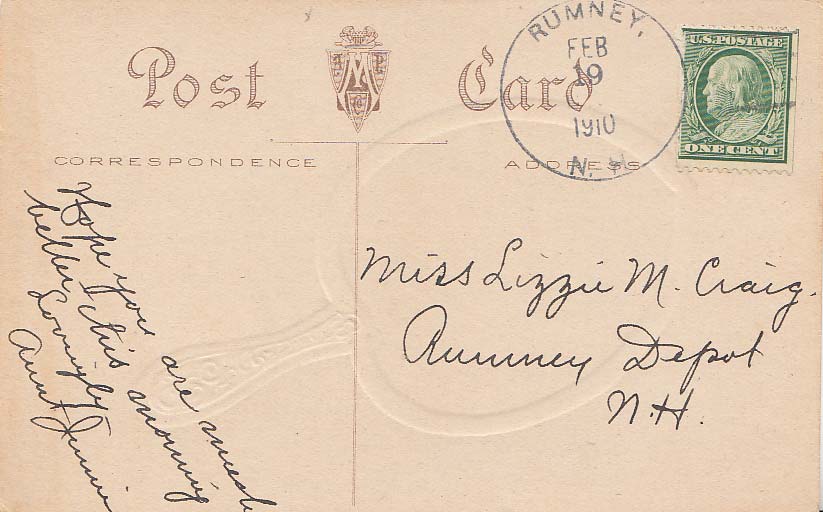 Post Card
CORRESPONDENCE
ADDRESS
RUMNEY,
FEB
19
1910
N. H.
U.S. POSTAGE
ONE CENT
Hope you are much
better this morning
Lovingly
Aunt Jennie
Miss Lizzie M. Craig.
Rumney Depot
N.H.